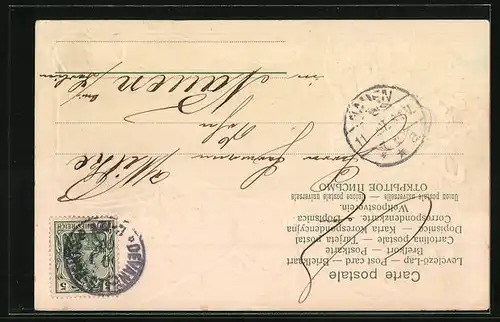 Carte postale
Levelező-Lap — Post card — Briefkaart
Brefkort — Postkarte — Postkort
Cartolina postale — Tarjeta postal
Dopisnice — Karta Korespondencyjna
Correspondenzkarte — Dopisnica
Weltpostverein.
Union postale universelle — Unione postale universale
ОТКРЫТОЕ ПИСЬМО
Herrn Hermann Wilke
in Nauen
bei Berlin
NAUEN
5
5